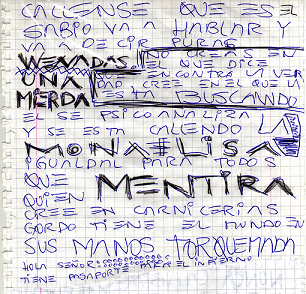 CALLENSE QUE ES EL
SABIO VA A HABLAR Y
VA A DECIR PURAS
WEVADAS. NO CREAS EN
QUE DICE
UNA ENCONTRA LA VER
MERDA DAD CREE EN EL QUE LA
ESTA BUSCANDO
EL SE PSICOANALIZA
Y SE ESTA CALENDO LA
MONALISA
IGUALDAD PARA TODOS
QUE MENTIRA
QUIEN
CREE EN CARNICERIAS
GORDO TIENE EL MUNDO EN
SUS MANOS TORQUEMADA
HOLA SEÑOR
TIENE PASAPORTE PARA EL INFIERNO